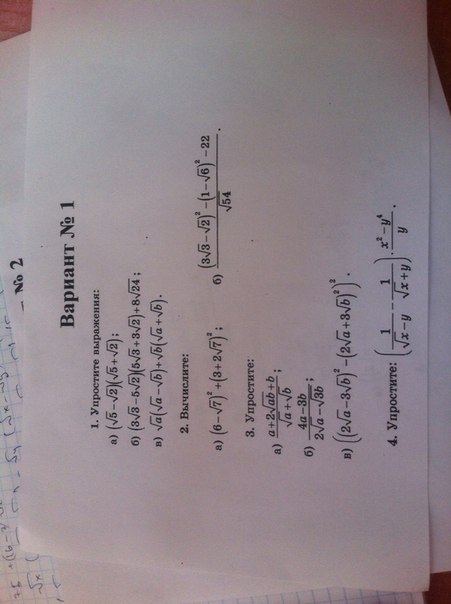 № 2
Вариант № 1
1. Упростите выражения:
а) (√5−√2)(√5+√2);
б) (3√3−5√2)(5√3+3√2)+8√24;
в) √a(√a−√b)+√b(√a+√b).
2. Вычислите:
а) (6−√7)²+(3+2√7)²;
б) ((3√3−√2)²−(1−√6)²−22)/√54.
3. Упростите:
а) (a+2√ab+b)/(√a+√b);
б) (4a−3b)/(2√a−√3b);
в) ((2√a−3√b)²−(2√a+3√b)²)².
4. Упростите: (1/(√x−y) − 1/(√x+y))·(x²−y⁴)/y.